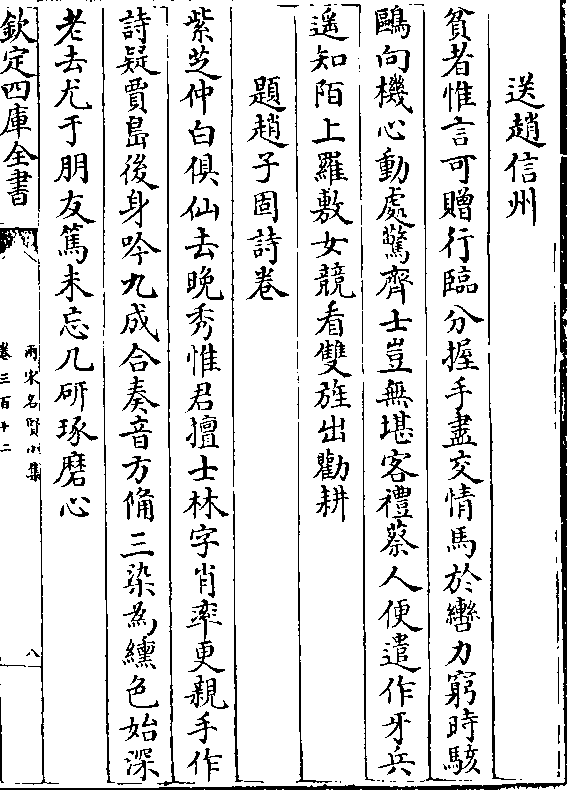 送趙信州
貧者惟言可贈行臨分握手盡交情馬於轡力窮時駭
鷗向機心動處驚齊士豈無堪客禮蔡人便遣作牙兵
遥知陌上羅敷女競看雙旌出勸耕
題趙子固詩卷
紫芝仲白俱仙去晚秀惟君擅士林字肖率更親手作
詩疑賈島後身吟九成合奏音方備三染為纁色始深
老去尤于朋友篤未忘几研琢磨心
欽定四庫全書
兩宋名賢小集
卷三百十二
八